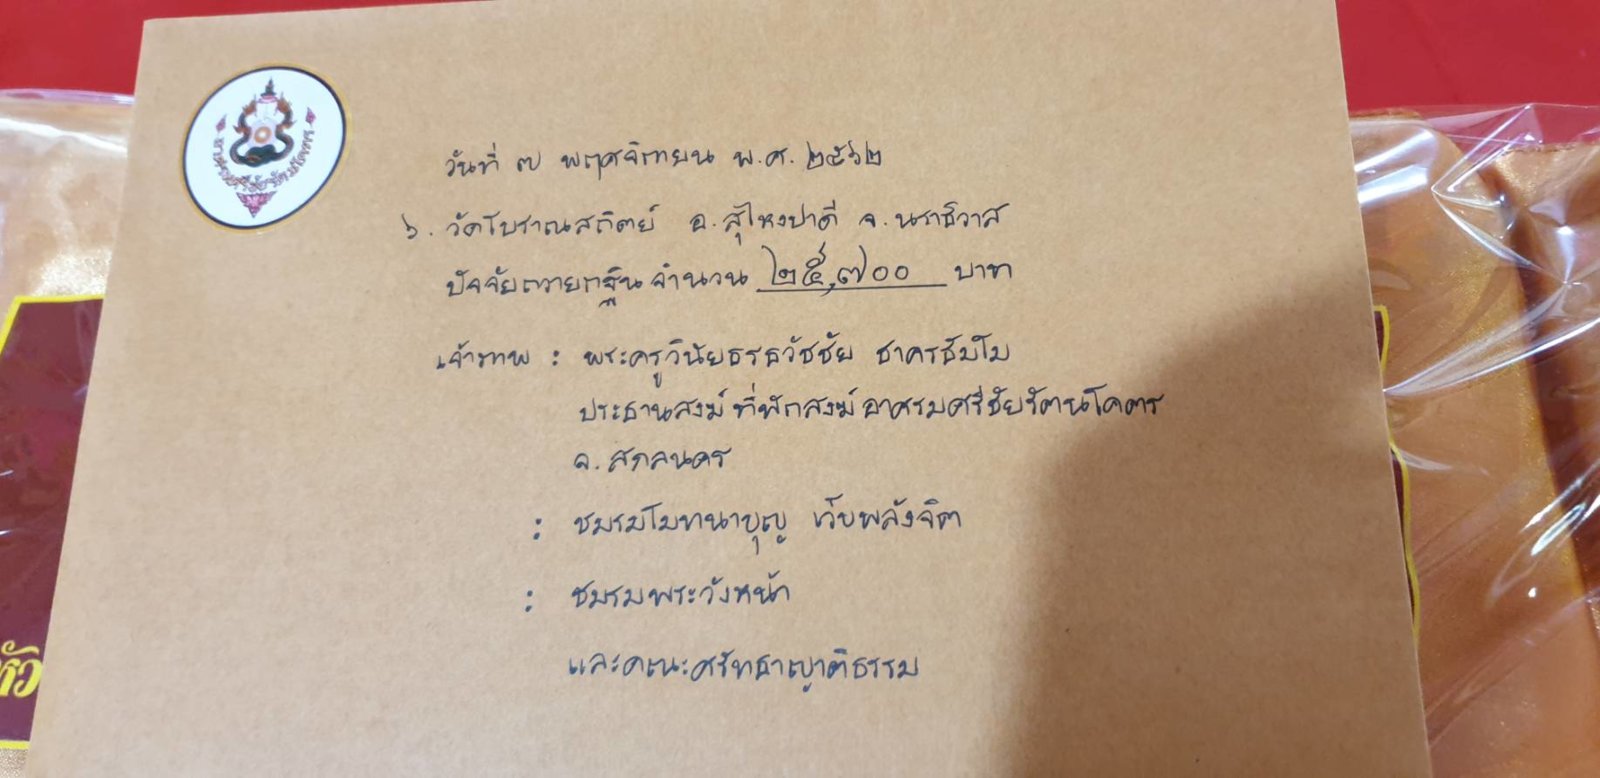 วันที่ ๗ พฤศจิกายน พ.ศ. ๒๕๖๒
๖. วัดโบราณสถิตย์ อ. สุไหงปาดี จ. นราธิวาส
ปัจจัยถวายกฐิน จำนวน ๒๕,๗๐๐ บาท
เจ้าภาพ : พระครูวินัยธรธวัชชัย ชาครธัมโม
ประธานสงฆ์ ที่พักสงฆ์ อาศรมศรีชัยรัตนโคตร
จ. สกลนคร
: ชมรมโมทนาบุญ เว็บพลังจิต
: ชมรมพระวังหน้า
และคณะศรัทธาญาติธรรม
หัว